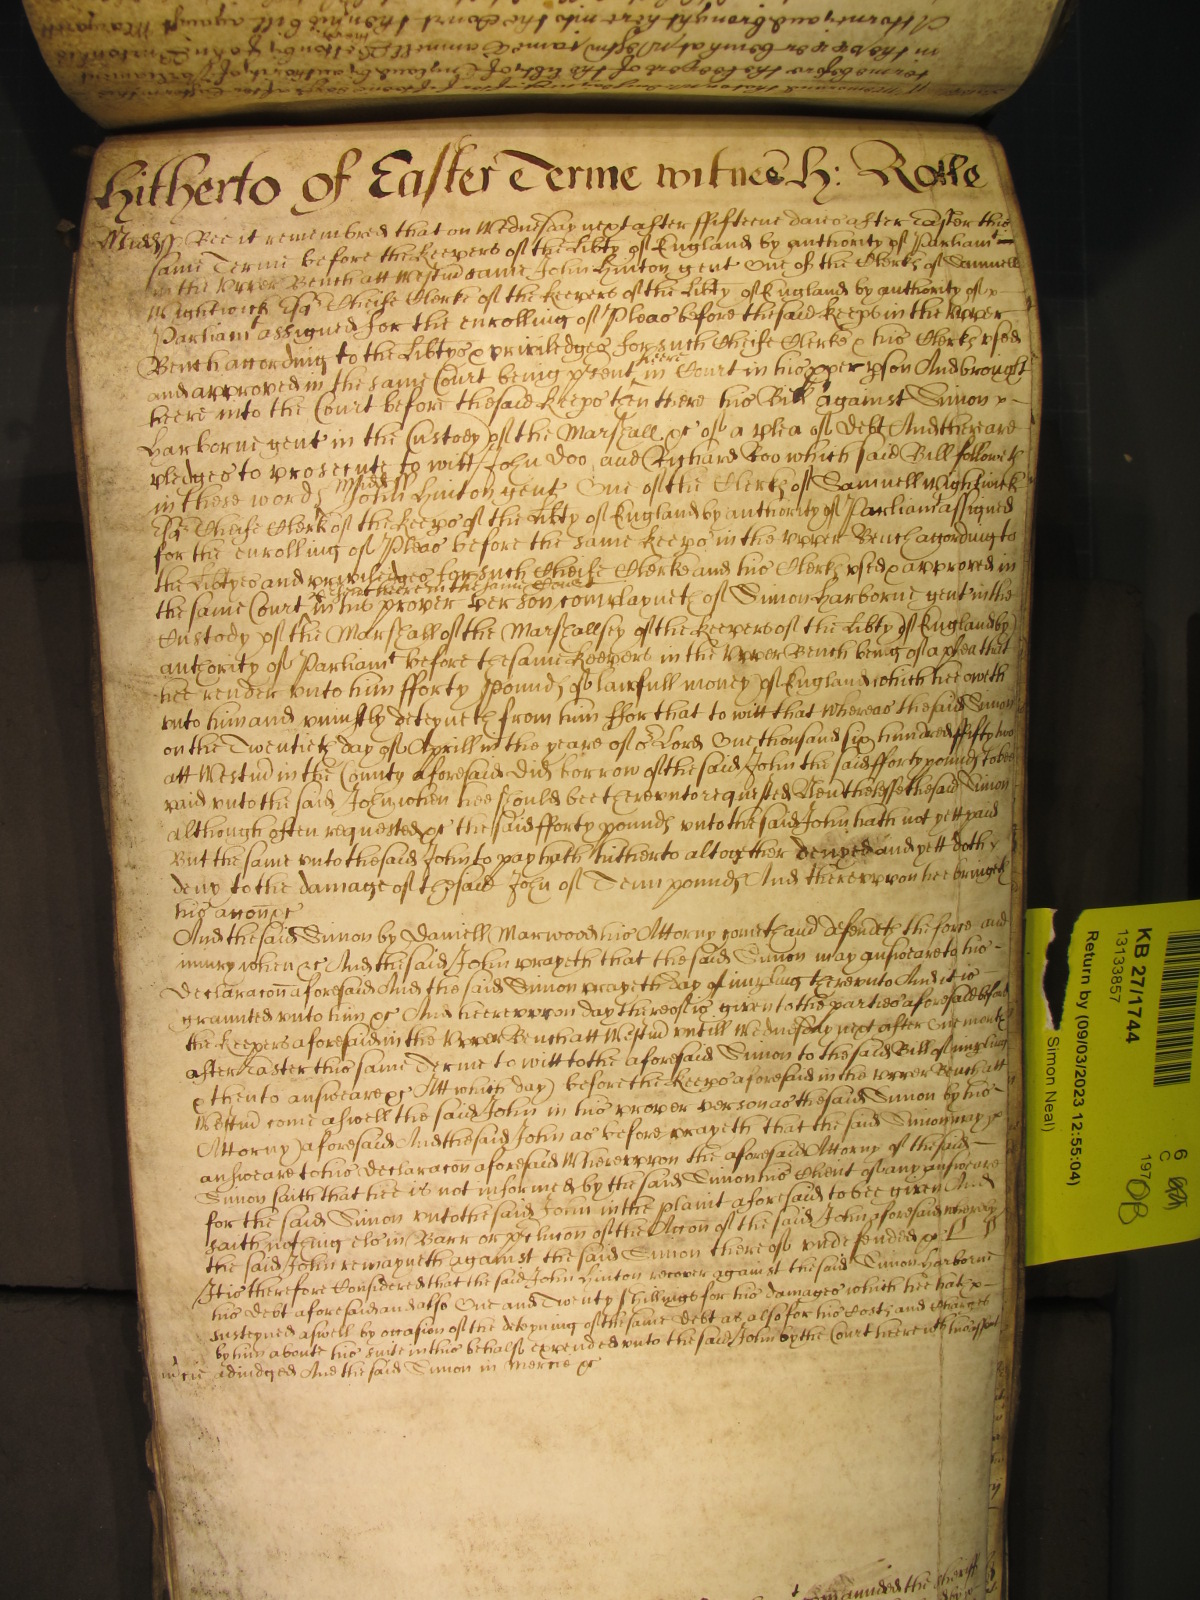 Hitherto of Easter Terme witnes h: Rolle
Midds Bee it remembred that on Wednesday next after ffifteene daies after Easter this
same Terme before the Keepers of the Libty of England by authority of Parliamt
in the Upper Bench att Westmr came John Hinton gent One of the Clerks of Samuell
Wightwick Esqr Cheife Clerke of the Keepers of the Libty of England by authority of
Parliamt assigned for the enrolling of Pleas before the said Keeps in the Upper
Bench according to the Libtyes & priviledges for such Cheife Clerke & his Clerks used
and approved in the same Court being psent heere in Court in his pper pson And brought
heere into the Court before the said Keeps then there his Bill against Simon
Harborne gent in the Custody of the Marshall &c of a plea of debt And there are
pledges to prosecute to witt John Doo and Richard Roo which said Bill followeth
in these words Midds John Hinton gent One of the Clerks of Samuell Wightwick
Esqr Cheife Clerk of the Keeps of the Libty of England by authority of Parliamt assigned
for the enrolling of Pleas before the same Keeps in the Upper Bench according to
the Libtyes and priviledges for such Cheife Clerke and his Clerks used & approved in
the same Court psent heere in the same Court in his proper person complayneth of Simon Harborne gent in the
Custody of the Marshall of the Marshallsey of the Keepers of the Libty of England by
authority of Parliamt before the same Keepers in the Upper Bench being of a plea that
hee render unto him fforty pounds of lawfull money of England which hee oweth
unto him and uniustly deteyneth from him ffor that to witt that whereas the said Simon
on the Twentieth day of Aprill in the yeare of or Lord One thousand six hundred ffifty two
att Westmr in the County aforesaid did borrow of the said John the said fforty pounds to bee
paid unto the said John when hee should bee thereunto requested Neverthelesse the said Simon
although often requested &c the said fforty pounds unto the said John hath not yett paid
But the same unto the said John to pay hath hitherto altogether denyed and yett doth
deny to the damage of the said John of Tenn pounds And thereuppon hee bringeth
his accon &c
And the said Simon by Daniell Marwood his Attorny cometh and defendeth the force and
iniury when &c And the said John prayeth that the said Simon may answeare to his
declaracon aforesaid And the said Simon prayeth day of imparling thereunto And it is
graunted unto him &c And heereuppon day thereof is given to the parties aforesaid before
the Keepers aforesaid in the Upper Bench att Westmr untill Wednesday next after one month
after Easter this same Terme to witt to the aforesaid Simon to the said Bill of imparling
& then to answeare &c Att which day before the Keeps aforesaid in the Upper Bench att
Westmr come aswell the said John in his proper person as the said Simon by his
Attorny aforesaid And the said John as before prayeth that the said Simon may
answeare to his declaracon aforesaid Whereuppon the aforesaid Attorny of the said
Simon saith that hee is not informed by the said Simon his Client of any answeare
for the said Simon unto the said John in the plaint aforesaid to bee given And
saith nothing els in Barr or pclusion of the Accon of the said John aforesaid whereby
the said John remayneth against the said Simon thereof undefended &c
It is therefore Considered that the said John Hinton recover against the said Simon Harborne
his debt aforesaid and also One and Twenty shillings for his damages which hee hath
susteyned aswell by occasion of the deteyning of the same debt as also for his Costs and Charges
by him aboute his suite in this behalfe expended unto the said John by the Court heere with his assent
adiudged And the said Simon in mercie &c
mcie
KB 27/1744
13133857
Return by (09/03/2023 12:55:04)
Simon Neal)
6
C